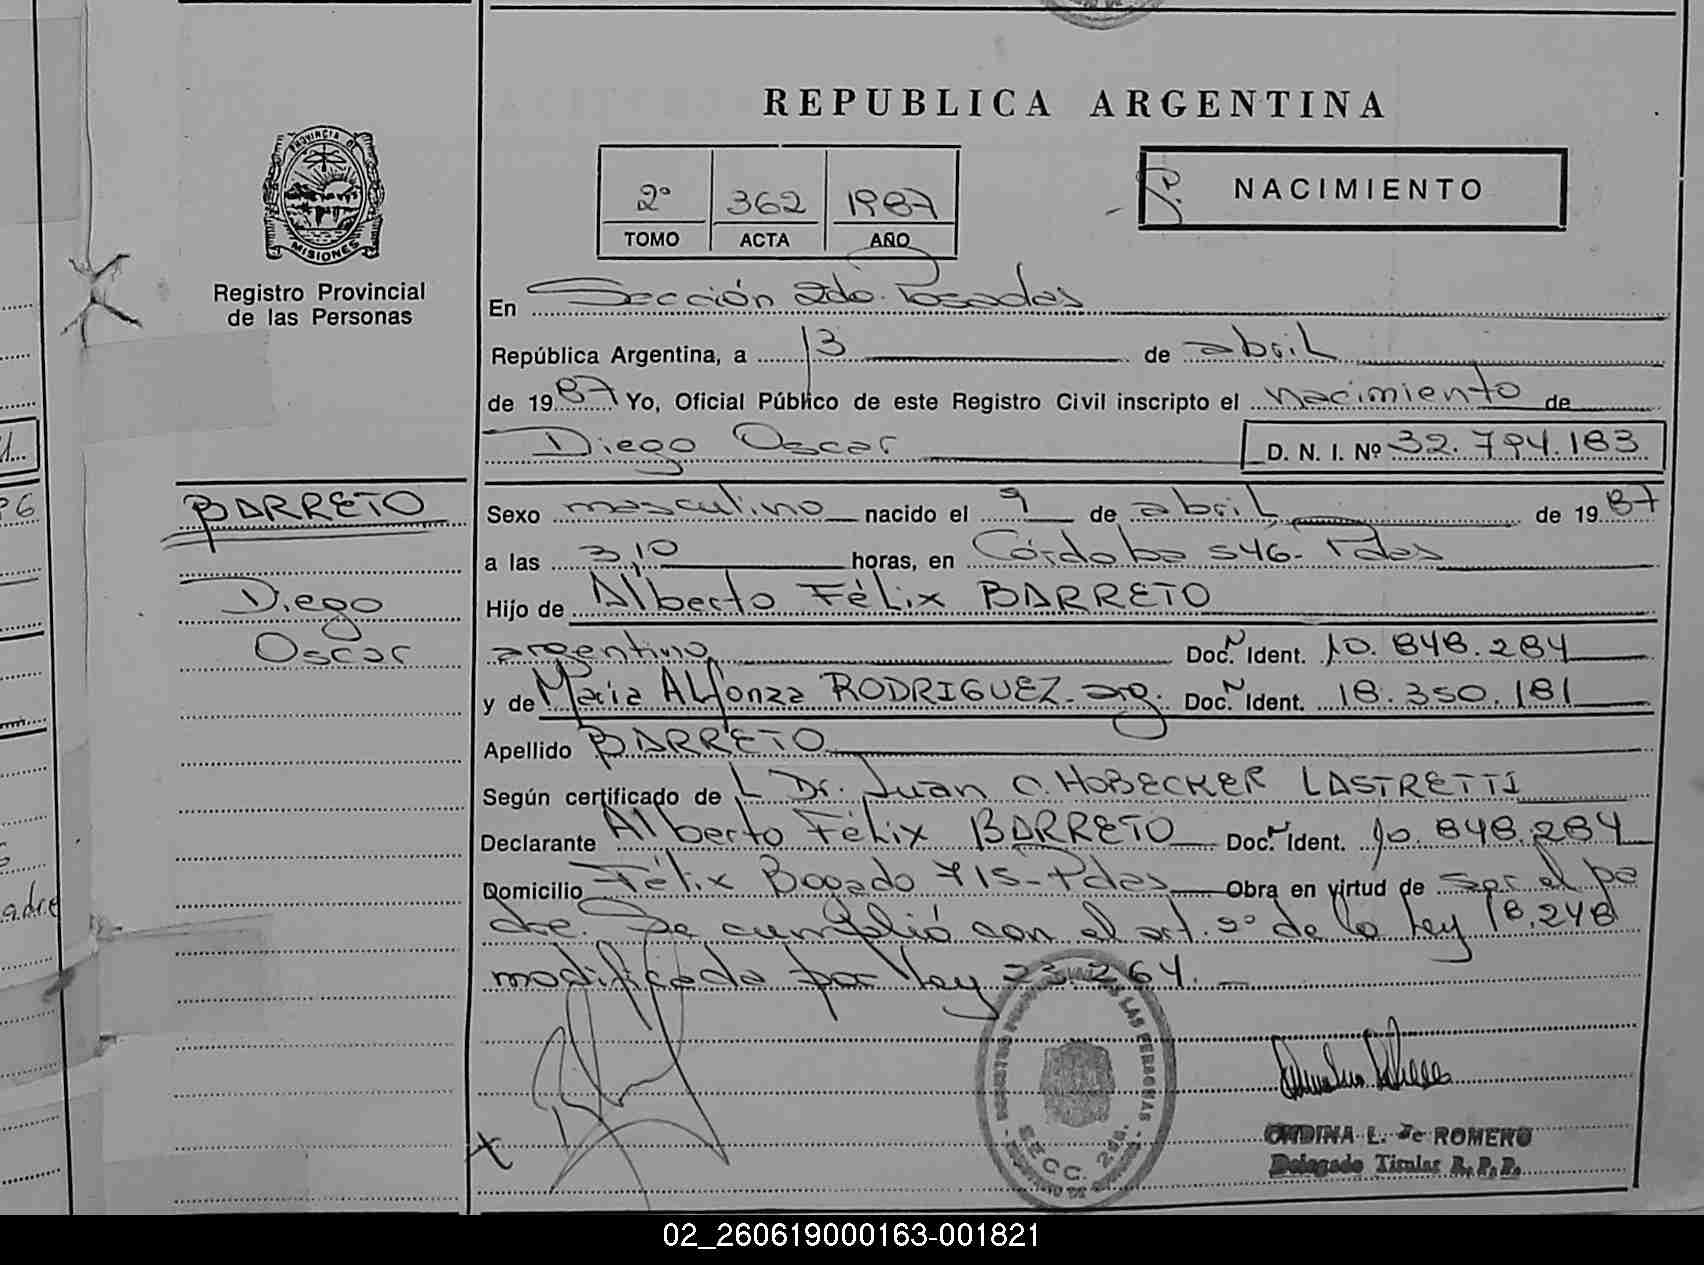 REPUBLICA ARGENTINA
PROVINCIA DE
MISIONES
Registro Provincial
de las Personas
2º 362 1987
TOMO ACTA AÑO
NACIMIENTO
En Sección 2do. Posadas
República Argentina, a 13 de abril
de 1987 Yo, Oficial Público de este Registro Civil inscripto el nacimiento de
Diego Oscar D. N. I. Nº 32.794.183
BARRETO
Diego
Oscar
Sexo masculino nacido el 9 de abril de 1987
a las 3,10 horas, en Córdoba 546- Pdas
Hijo de Alberto Félix BARRETO
argentino Doc. Ident. 10.848.284
y de Maria ALfonza RODRIGUEZ- arg. Doc. Ident. 18.350.181
Apellido BARRETO
Según certificado de L Dr. Juan C. HOBECKER LASTRETTI
Declarante Alberto Félix BARRETO Doc. Ident. 10.848.284
Domicilio Félix Bogado 715- Pdas Obra en virtud de ser el pa
dre. Se cumplió con el art. 5º de la Ley 18.248
modificada por Ley 23.264.
LAS PERSONAS
SECC. 2da.
ONDINA L. de ROMERO
Delegado Titular R. P. P.
96
adre
02_260619000163-001821